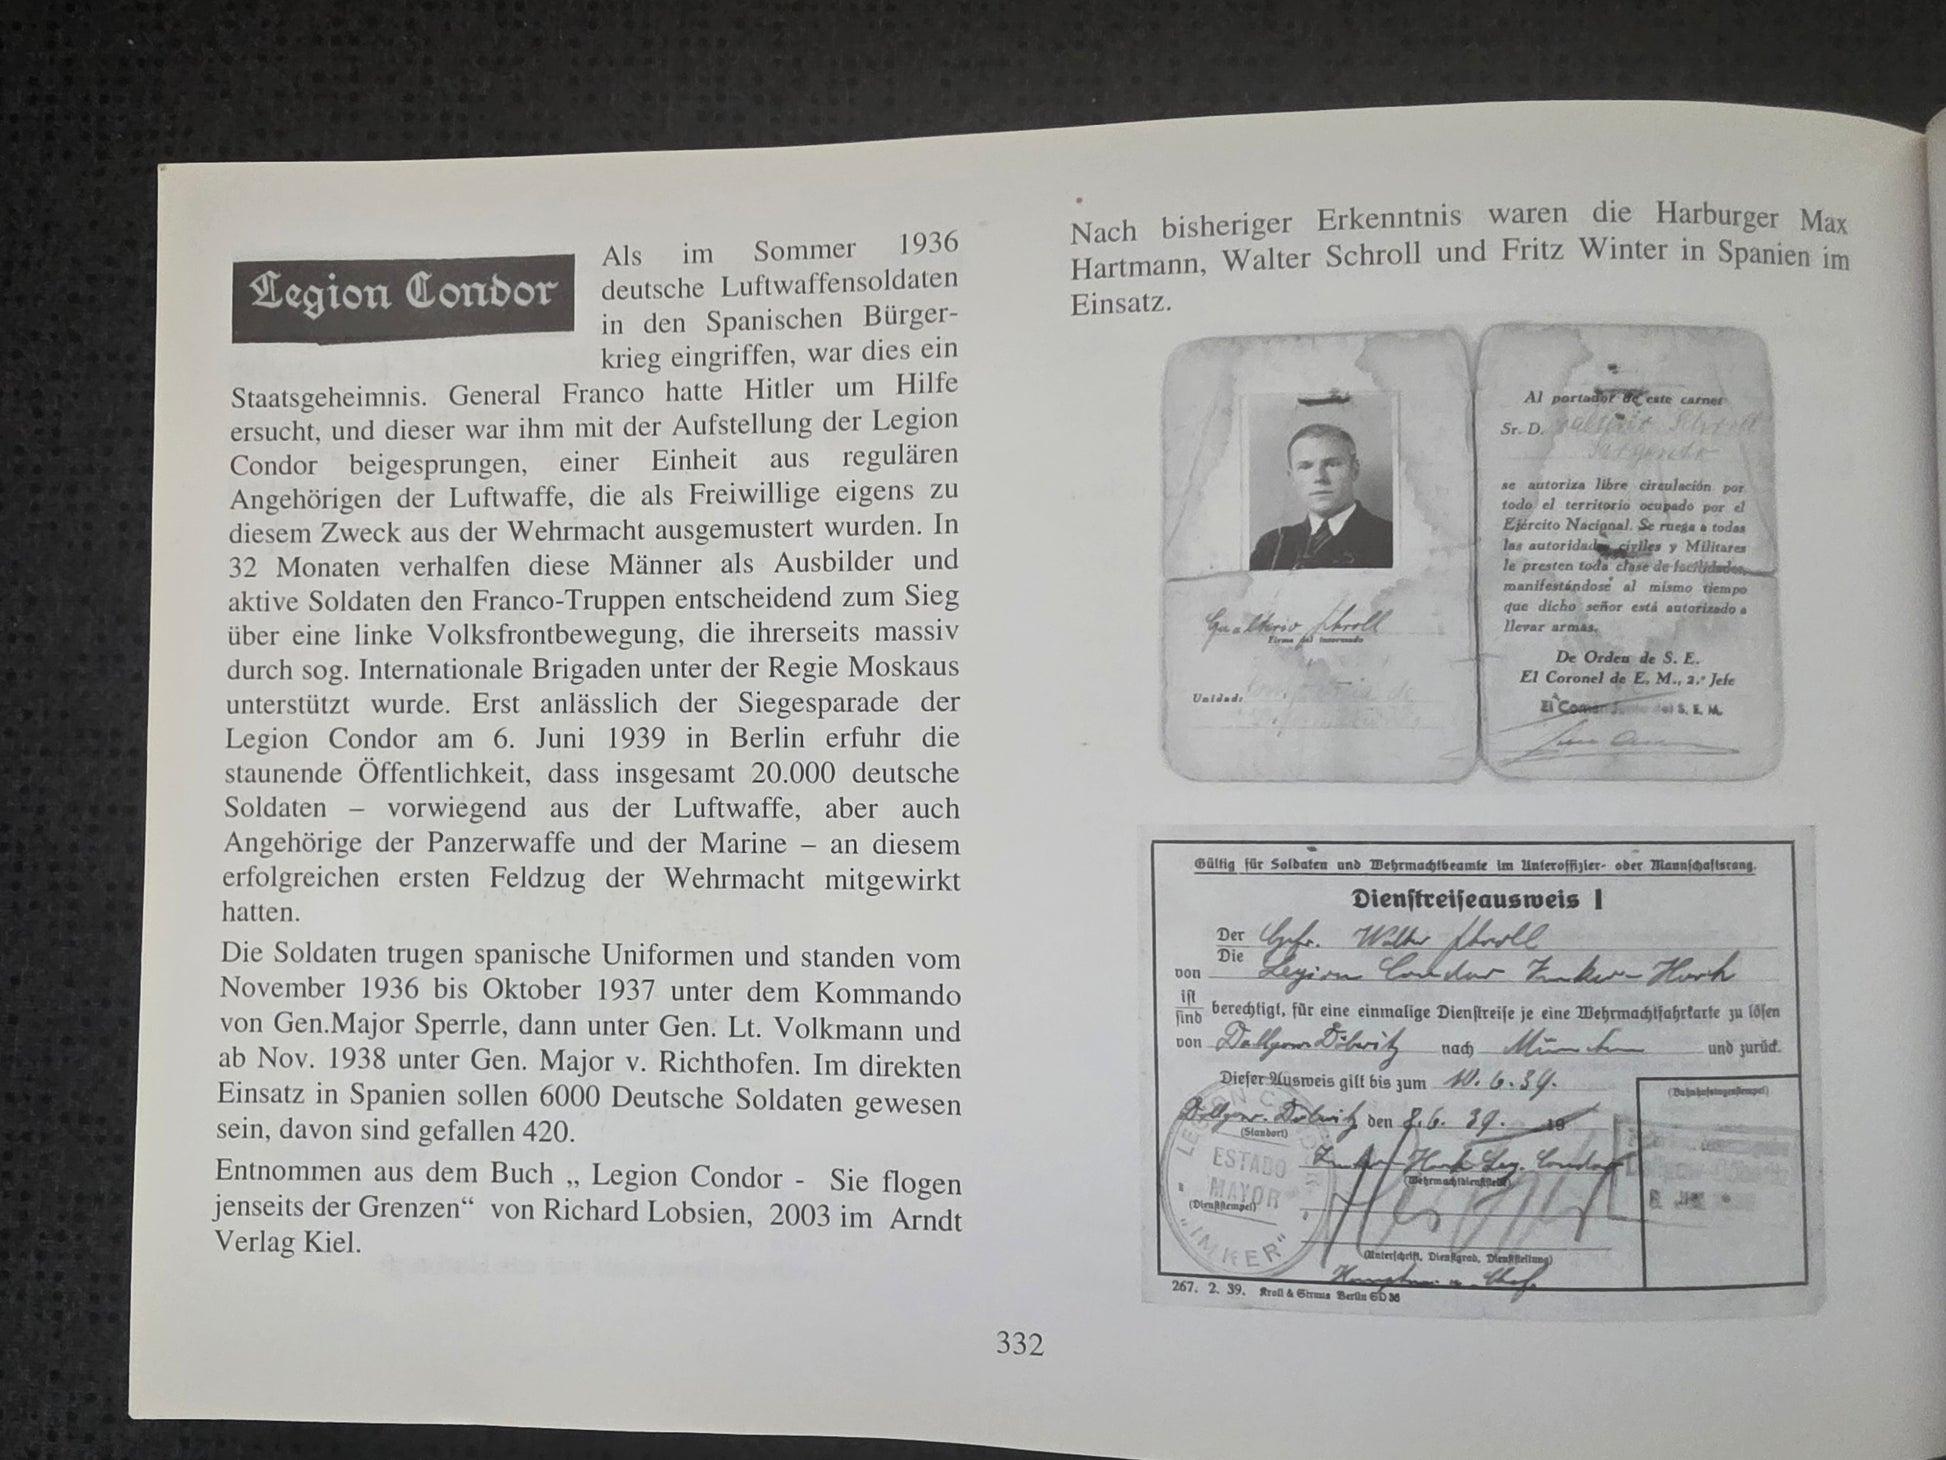 Legion Condor
Als im Sommer 1936
deutsche Luftwaffensoldaten
in den Spanischen Bürger-
krieg eingriffen, war dies ein
Staatsgeheimnis. General Franco hatte Hitler um Hilfe
ersucht, und dieser war ihm mit der Aufstellung der Legion
Condor beigesprungen, einer Einheit aus regulären
Angehörigen der Luftwaffe, die als Freiwillige eigens zu
diesem Zweck aus der Wehrmacht ausgemustert wurden. In
32 Monaten verhalfen diese Männer als Ausbilder und
aktive Soldaten den Franco-Truppen entscheidend zum Sieg
über eine linke Volksfrontbewegung, die ihrerseits massiv
durch sog. Internationale Brigaden unter der Regie Moskaus
unterstützt wurde. Erst anlässlich der Siegesparade der
Legion Condor am 6. Juni 1939 in Berlin erfuhr die
staunende Öffentlichkeit, dass insgesamt 20.000 deutsche
Soldaten – vorwiegend aus der Luftwaffe, aber auch
Angehörige der Panzerwaffe und der Marine – an diesem
erfolgreichen ersten Feldzug der Wehrmacht mitgewirkt
hatten.
Die Soldaten trugen spanische Uniformen und standen vom
November 1936 bis Oktober 1937 unter dem Kommando
von Gen.Major Sperrle, dann unter Gen. Lt. Volkmann und
ab Nov. 1938 unter Gen. Major v. Richthofen. Im direkten
Einsatz in Spanien sollen 6000 Deutsche Soldaten gewesen
sein, davon sind gefallen 420.
Entnommen aus dem Buch „ Legion Condor - Sie flogen
jenseits der Grenzen“ von Richard Lobsien, 2003 im Arndt
Verlag Kiel.
Nach bisheriger Erkenntnis waren die Harburger Max
Hartmann, Walter Schroll und Fritz Winter in Spanien im
Einsatz.
Gualterio Schroll
Firma del interesado
Unidad:
Al portador de este carnet
Sr. D. Schroll
Sargento
se autoriza libre circulación por
todo el territorio ocupado por el
Ejército Nacional. Se ruega a todas
las autoridades civiles y Militares
le presten toda clase de facilidades,
manifestándose al mismo tiempo
que dicho señor está autorizado a
llevar armas.
De Orden de S. E.
El Coronel de E. M., 2.º Jefe
S. E. M.
Gültig für Soldaten und Wehrmachtbeamte im Unteroffizier- oder Mannschaftsrang.
Dienstreiseausweis I
Der Gefr. Walter Schroll
Die
von Legion Condor Imker-Horch
ist
sind berechtigt, für eine einmalige Dienstreise je eine Wehrmachtfahrkarte zu lösen
von Dallgow-Döberitz nach München und zurück.
Dieser Ausweis gilt bis zum 10.6.39.
(Bahnhofstagesstempel)
Dallgow-Döberitz den 8.6.39. 19
(Standort)
Imker Horch Leg. Condor
(Wehrmachtdienststelle)
LEGION CONDOR
ESTADO
MAYOR
"IMKER"
(Dienststempel)
(Unterschrift, Dienstgrad, Dienststellung)
Hauptm. u. Chef
267. 2. 39. Kroll & Straus Berlin SO 36
332